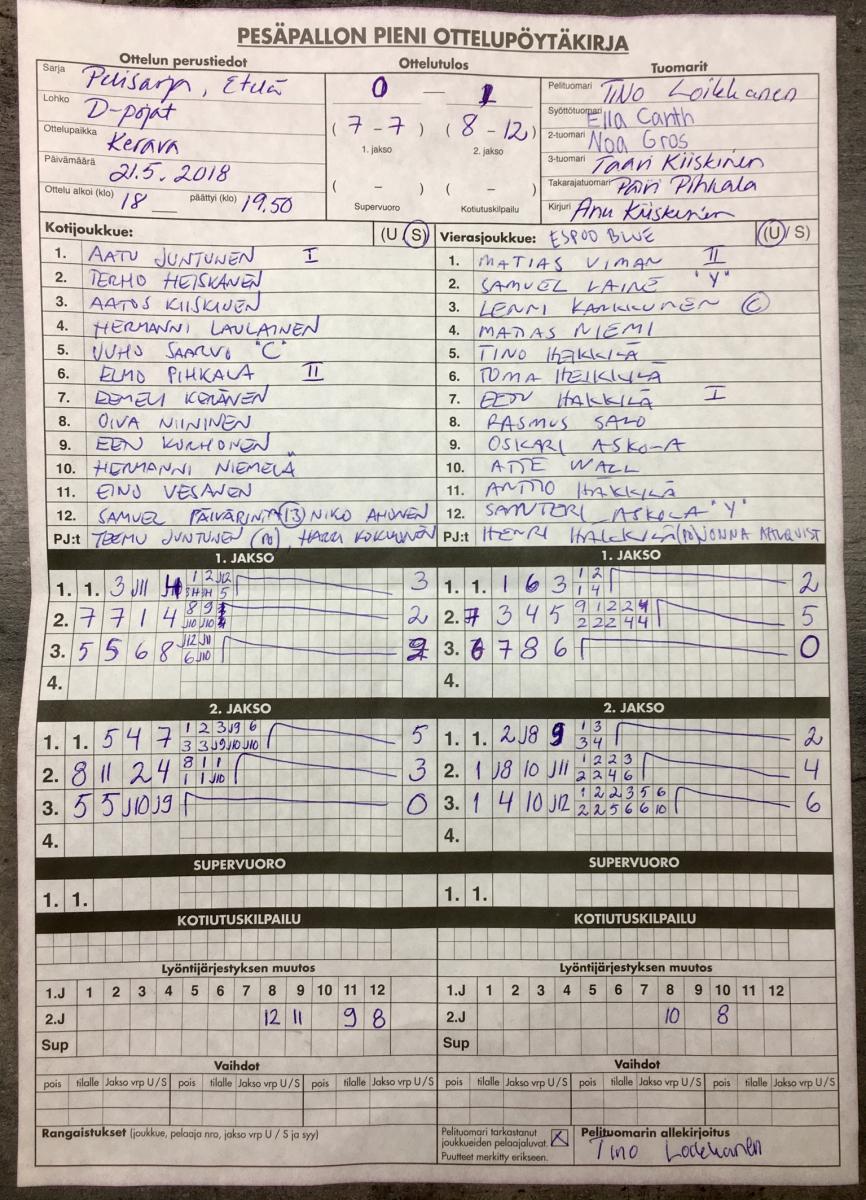 PESÄPALLON PIENI OTTELUPÖYTÄKIRJA
Ottelun perustiedot
Sarja Pelisarja, Etelä
Lohko D-pojat
Ottelupaikka Kerava
Päivämäärä 21.5.2018
Ottelu alkoi (klo) 18 päättyi (klo) 19.50
Ottelutulos
0 — 1
(7-7) (8-12)
1. jakso 2. jakso
( - ) ( - )
Supervuoro Kotiutuskilpailu
Tuomarit
Pelituomari TINO Loikkanen
Syöttötuomari Ella Canth
2-tuomari Noa Gros
3-tuomari Taavi Kiiskinen
Takarajatuomari Päivi Pihkala
Kirjuri Anu Kiiskinen
Kotijoukkue: (U S)
1. AATU JUNTUNEN I
2. TERHO HEISKANEN
3. AATOS KIISKINEN
4. HERMANNI LAULAINEN
5. JUHO SAARVO "C"
6. ELMO PIHKALA II
7. EEMELI KERÄNEN
8. OIVA NIININEN
9. EEN KORHONEN
10. HERMANNI NIEMELÄ
11. EINO VESANEN
12. SAMUEL PÄIVÄRINTA (13) NIKO AHONEN
PJ:t TEEMU JUNTUNEN HARRI KOKKONEN
Vierasjoukkue: ESPOO BLUE (U/ S)
1. MATIAS VIMAN II
2. SAMUEL LAINE "Y"
3. LENNI KARKKUNEN C
4. MATIAS NIEMI
5. TINO HEIKKILÄ
6. TOMA HEIKKILÄ
7. EETU HAKKILÄ I
8. RASMUS SALO
9. OSKARI ASKOLA
10. ATTE WALL
11. ANTTO HAKKILÄ
12. SANTERI ASKOLA "Y"
PJ:t HENRI HAKKILÄ JONNA AHLQVIST
1. JAKSO
1. 1. 3 J11 4 3
2. 7 7 1 4 2
3. 5 5 6 8 2
4.
2. JAKSO
1. 1. 5 4 7 1 2 3 J9 6 5
3 3 J9 J10 J10
2. 8 11 2 4 8 1 1 3
1 1 J10
3. 5 5 J10 J9 0
4.
SUPERVUORO
1. 1.
KOTIUTUSKILPAILU
1. JAKSO
1. 1. 1 6 3 1 2 2
1 4
2. 7 3 4 5 9 1 2 2 4 5
2 2 2 4 4
3. 6 7 8 6 0
4.
2. JAKSO
1. 1. 2 J8 9 1 3 2
3 4
2. 1 J8 10 J11 1 2 2 3 4
2 2 4 6
3. 1 4 10 J12 1 2 2 3 5 6 6
2 2 5 6 6 10
4.
SUPERVUORO
1. 1.
KOTIUTUSKILPAILU
Lyöntijärjestyksen muutos
1.J 1 2 3 4 5 6 7 8 9 10 11 12
2.J 12 11 9 8
Sup
Vaihdot
pois tilalle Jakso vrp U/S pois tilalle Jakso vrp U/S pois tilalle Jakso vrp U/S
Lyöntijärjestyksen muutos
1.J 1 2 3 4 5 6 7 8 9 10 11 12
2.J 10 8
Sup
Vaihdot
pois tilalle Jakso vrp U/S pois tilalle Jakso vrp U/S pois tilalle Jakso vrp U/S
Rangaistukset (joukkue, pelaaja nro, jakso vrp U / S ja syy)
Pelituomari tarkastanut
joukkueiden pelaajaluvat.
Puutteet merkitty erikseen.
Pelituomarin allekirjoitus
Tino Loikkanen